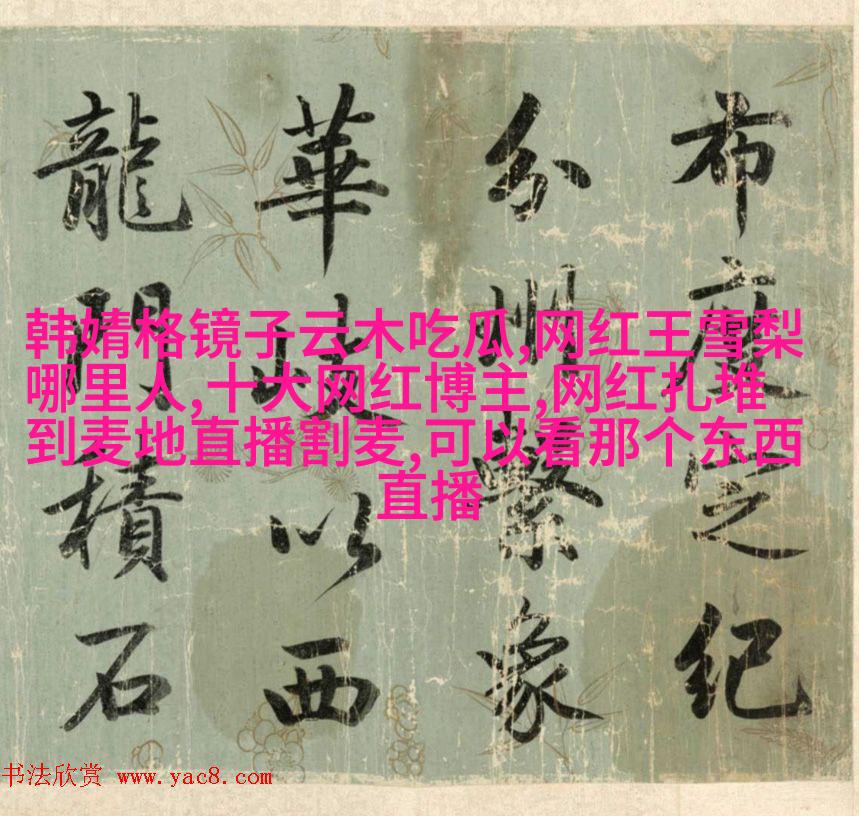 布度定紀
分州繫象
華岐以西
龍門積石
韩婧格镜子云木吃瓜,网红王雪梨
哪里人,十大网红博主,网红扎堆
到麦地直播割麦,可以看那个东西
直播
书法欣赏 www.yac8.com